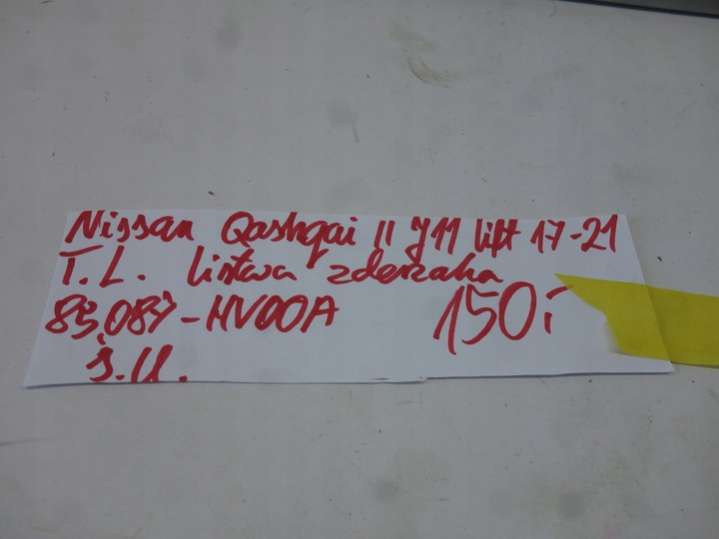 Nissan Qashqai II J11 lift 17-21
T.L. listwa zderzaka
85087-HV00A 150,-
Ś.U.